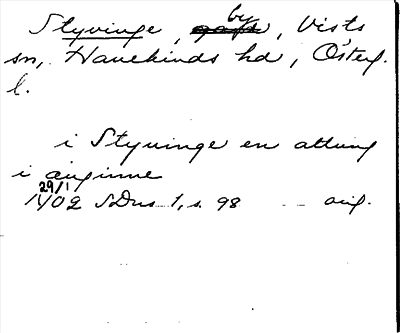 Styvinge, by, Vists
sn, Hanekinds hd, Österg.
l.
i Styuinge en attung
i ænginne
29/1
1402 SDns 1, s. 98 -- orig.